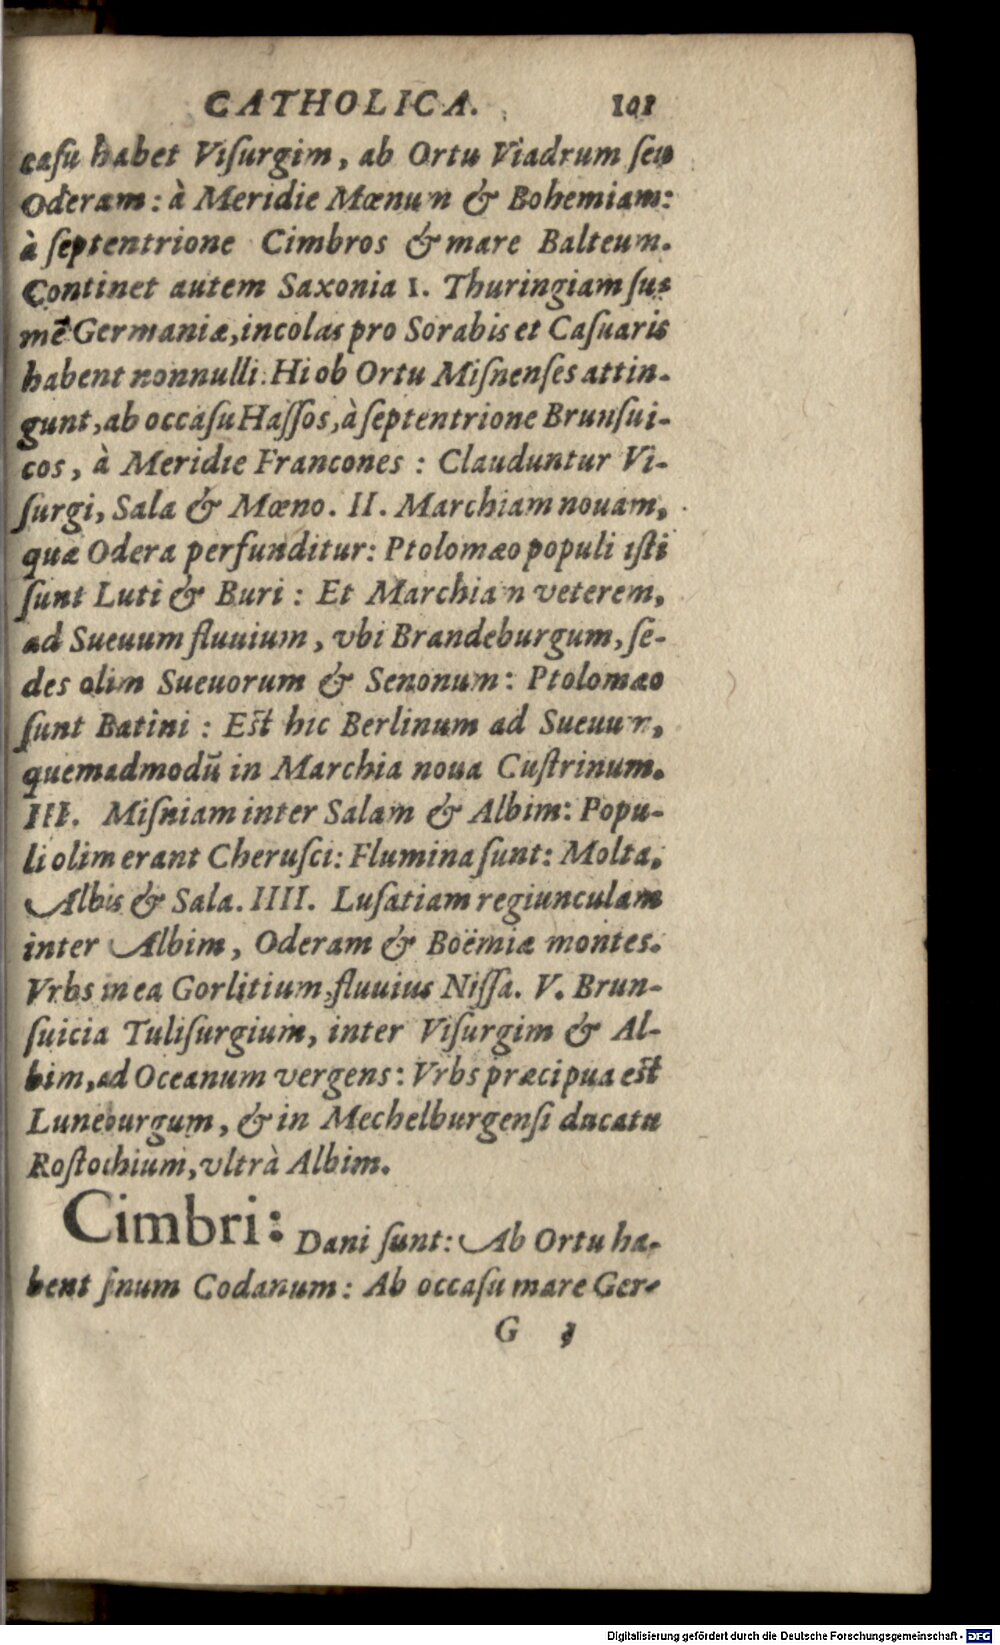 CATHOLICA. 101
casu habet Visurgim, ab Ortu Viadrum seu
Oderam: à Meridie Mœnum & Bohemiam:
à septentrione Cimbros & mare Balteum.
Continet autem Saxonia I. Thuringiam sum-
mē Germaniæ, incolas pro Sorabis et Casuaris
habent nonnulli: Hi ob Ortu Misnenses attin-
gunt, ab occasu Hassos, à septentrione Brunsui-
cos, à Meridie Francones: Clauduntur Vi-
surgi, Sala & Mœno. II. Marchiam nouam,
quæ Odera perfunditur: Ptolomæo populi isti
sunt Luti & Buri: Et Marchiam veterem,
ad Sueuum fluuium, vbi Brandeburgum, se-
des olim Sueuorum & Senonum: Ptolomæo
sunt Batini: Est hic Berlinum ad Sueuum,
quemadmodū in Marchia noua Custrinum.
III. Misniam inter Salam & Albim: Popu-
li olim erant Cherusci: Flumina sunt: Molta,
Albis & Sala. IIII. Lusatiam regiunculam
inter Albim, Oderam & Boëmiæ montes.
Vrbs in ea Gorlitium, fluuius Nissa. V. Brun-
suicia Tulisurgium, inter Visurgim & Al-
bim, ad Oceanum vergens: Vrbs præcipua est
Luneburgum, & in Mechelburgensi ducatu
Rostochium, vltrà Albim.
Cimbri: Dani sunt: Ab Ortu ha-
bent sinum Codanum: Ab occasu mare Ger-
G 3
Digitalisierung gefördert durch die Deutsche Forschungsgemeinschaft - DFG